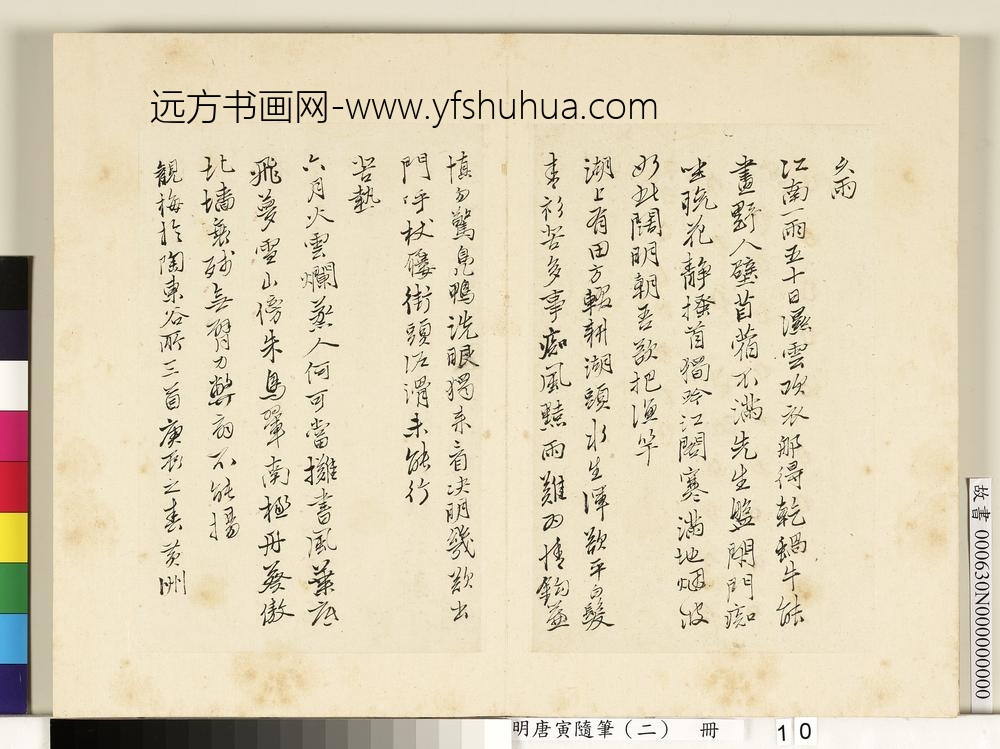 远方书画网-www.yfshuhua.com
久雨
江南一雨五十日濕雲吹衣那得乾蝸牛能
畫野人壁苜蓿不滿先生盤閉門痴
坐晚花靜搔首獨吟江閣寒滿地烟波
如此闊明朝吾欲把漁竿
湖上有田方輟耕湖頭水生渾欲平白髮
青衫苦多事痴風點雨難為情鉤簾
慎勿驚鳧鴨洗眼獨來看决明幾欲出
門呼杖屨街頭泥滑未能行
苦熱
六月火雲爛蒸人何可當攤書風葉底
飛夢雪山傍朱鳥翠南極丹葵傲
北墻衰殘無臂力弊扇不能揚
觀梅於陶東谷所三首庚辰之春黃州
故書 000630N000000000
明唐寅隨筆（二） 冊 10